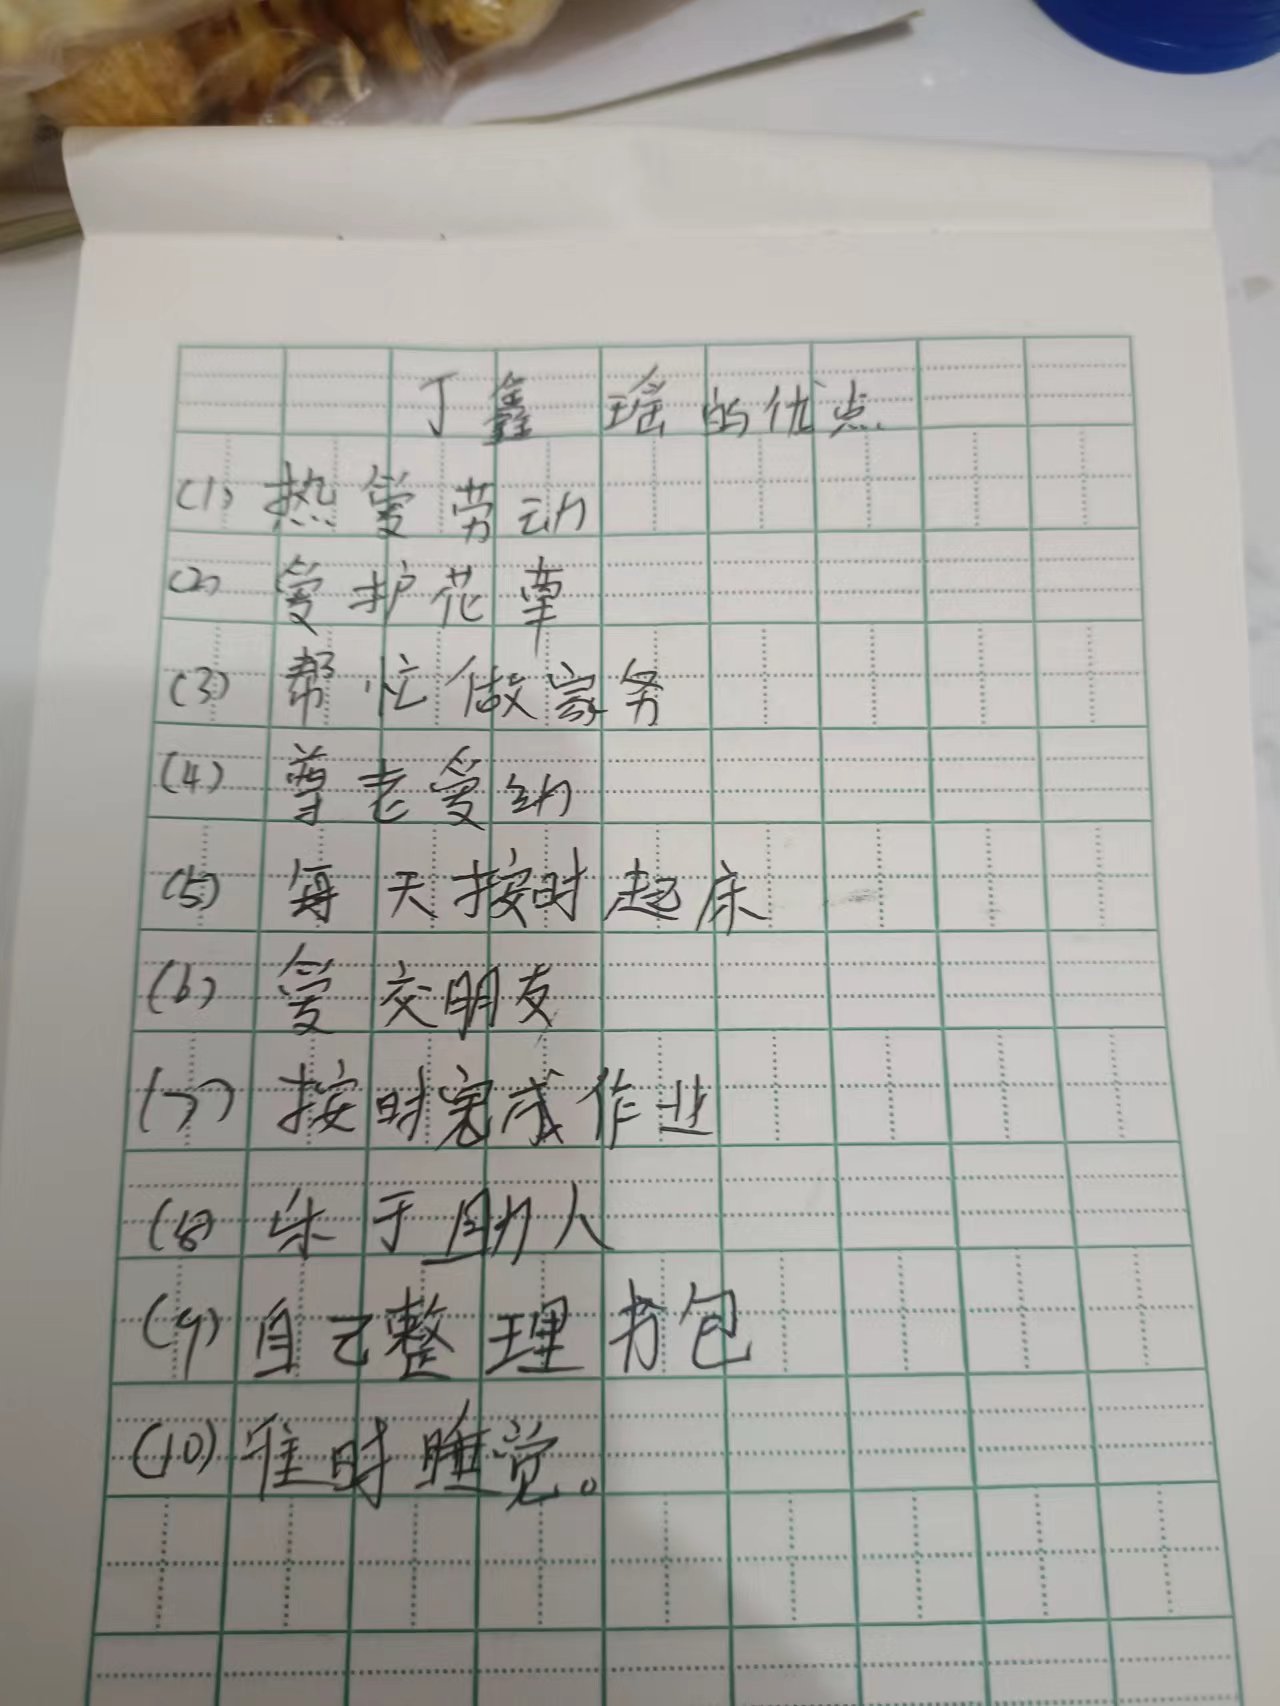 丁鑫瑶的优点
(1) 热爱劳动
(2) 爱护花草
(3) 帮忙做家务
(4) 尊老爱幼
(5) 每天按时起床
(6) 爱交朋友
(7) 按时完成作业
(8) 乐于助人
(9) 自己整理书包
(10) 准时睡觉。